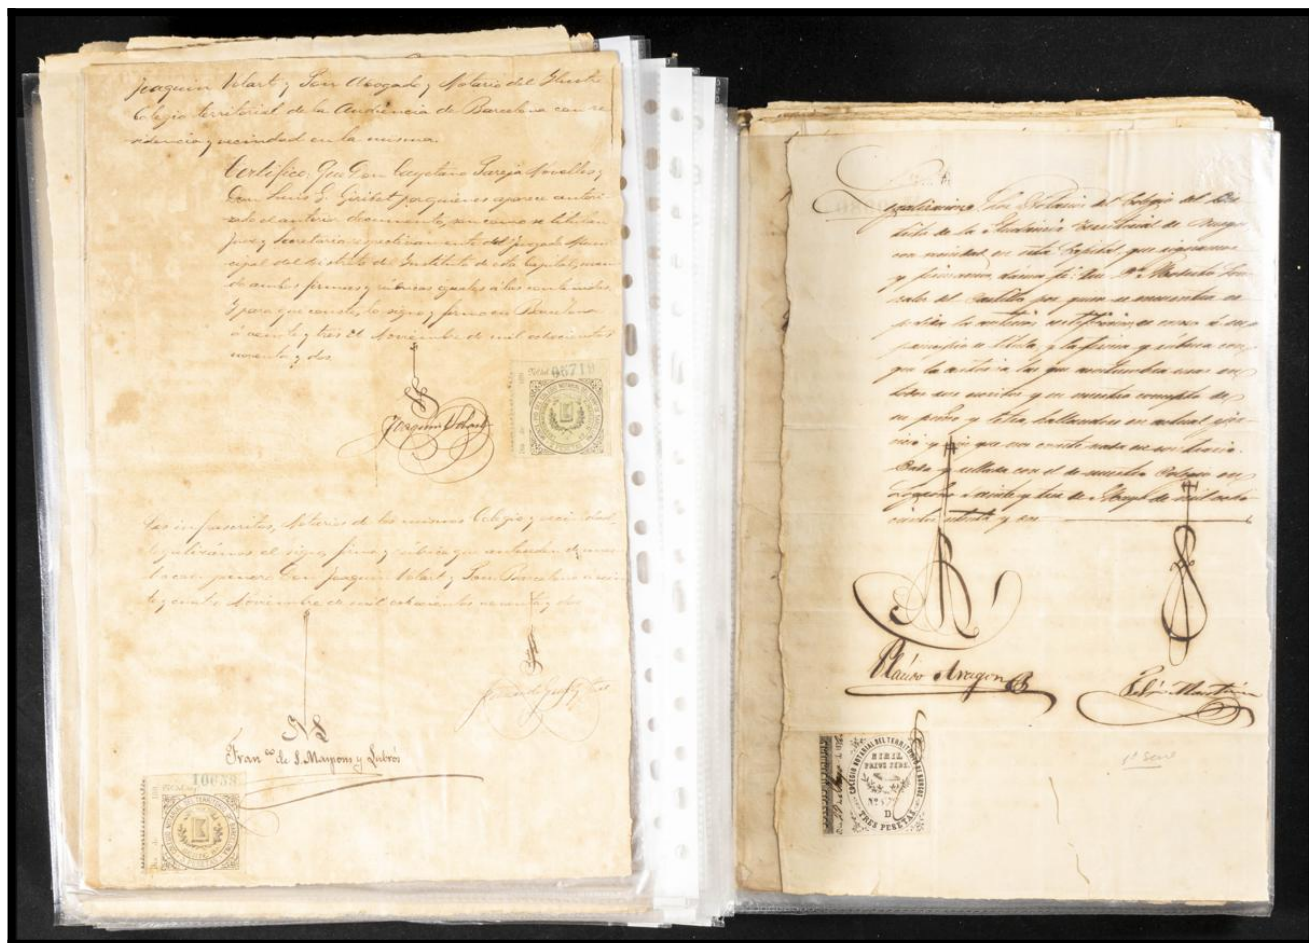 Joaquin Volart y Son Abogado y Notario del Ilustre
Colegio territorial de la Audiencia de Barcelona con re
sidencia y vecindad en la misma.
Certifico, Que Don Cayetano Pareja Novelles y
Don Luis G. Giribet por quienes aparece autori
zado el anterior documento, son como se titulan
Juez y Secretario respectivamente del Juzgado Muni
cipal del distrito del Instituto de esta Capital,
de ambos firmas y rúbricas iguales á las
Y para que conste, lo signo y firmo en Barcelona
á veinte y tres de Noviembre de mil ochocientos
noventa y dos
06718
Joaquin Volart
Los infrascritos, Notarios de los mismos Colegio y vecindad,
legalizamos el signo, firma y rúbrica que anteceden de
Don Joaquin Volart y Son Barcelona
y cuatro Noviembre de mil ochocientos noventa y dos
Fran.co de S. Maspons y Labrós
10638
Legalizamos Los Notarios del Colegio del
de la Audiencia Territorial de Burgos
con vecindad en esta Capital que signamos
y firmamos damos fé: Que D.n Modesto
del Castillo por quien se encuentra es
la anterior certificacion es como
se titula, y la firma y rúbrica con
que la autoriza las que acostumbra usar en
todos sus escritos y en nuestro concepto de
su puño y letra, hallandose en actual
y sin que nos conste nada en contrario.
y sellada con el de nuestro Colegio en
Logroño á veinte y tres de Mayo de mil ocho
cientos ochenta y dos
Pláuso Aragon
Felix Martinez
COLEGIO NOTARIAL DEL TERRITORIO DE BURGOS
Nº
D
TRES PESETAS
1ª Serie